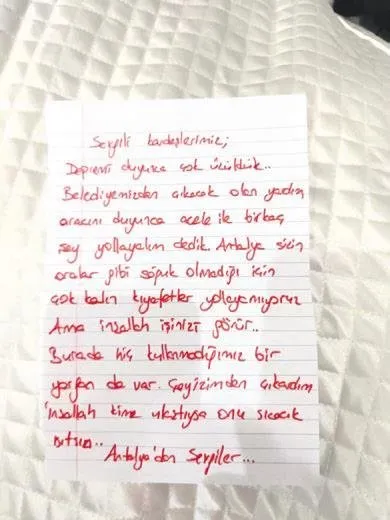 Sevgili kardeşlerimiz;
Depremi duyunca çok üzüldük..
Belediyemizden çıkacak olan yardım
aracını duyunca acele ile birkaç
şey yollayalım dedik. Antalya sizin
oralar gibi soğuk olmadığı için
çok kalın kıyafetler yollayamıyoruz
Ama inşallah işinizi görür..
Burada hiç kullanmadığımız bir
yorgan da var. Çeyizimden çıkardım
inşallah kime ulaştıysa onu sıcacık
tutsun..
Antalya'dan Sevgiler...